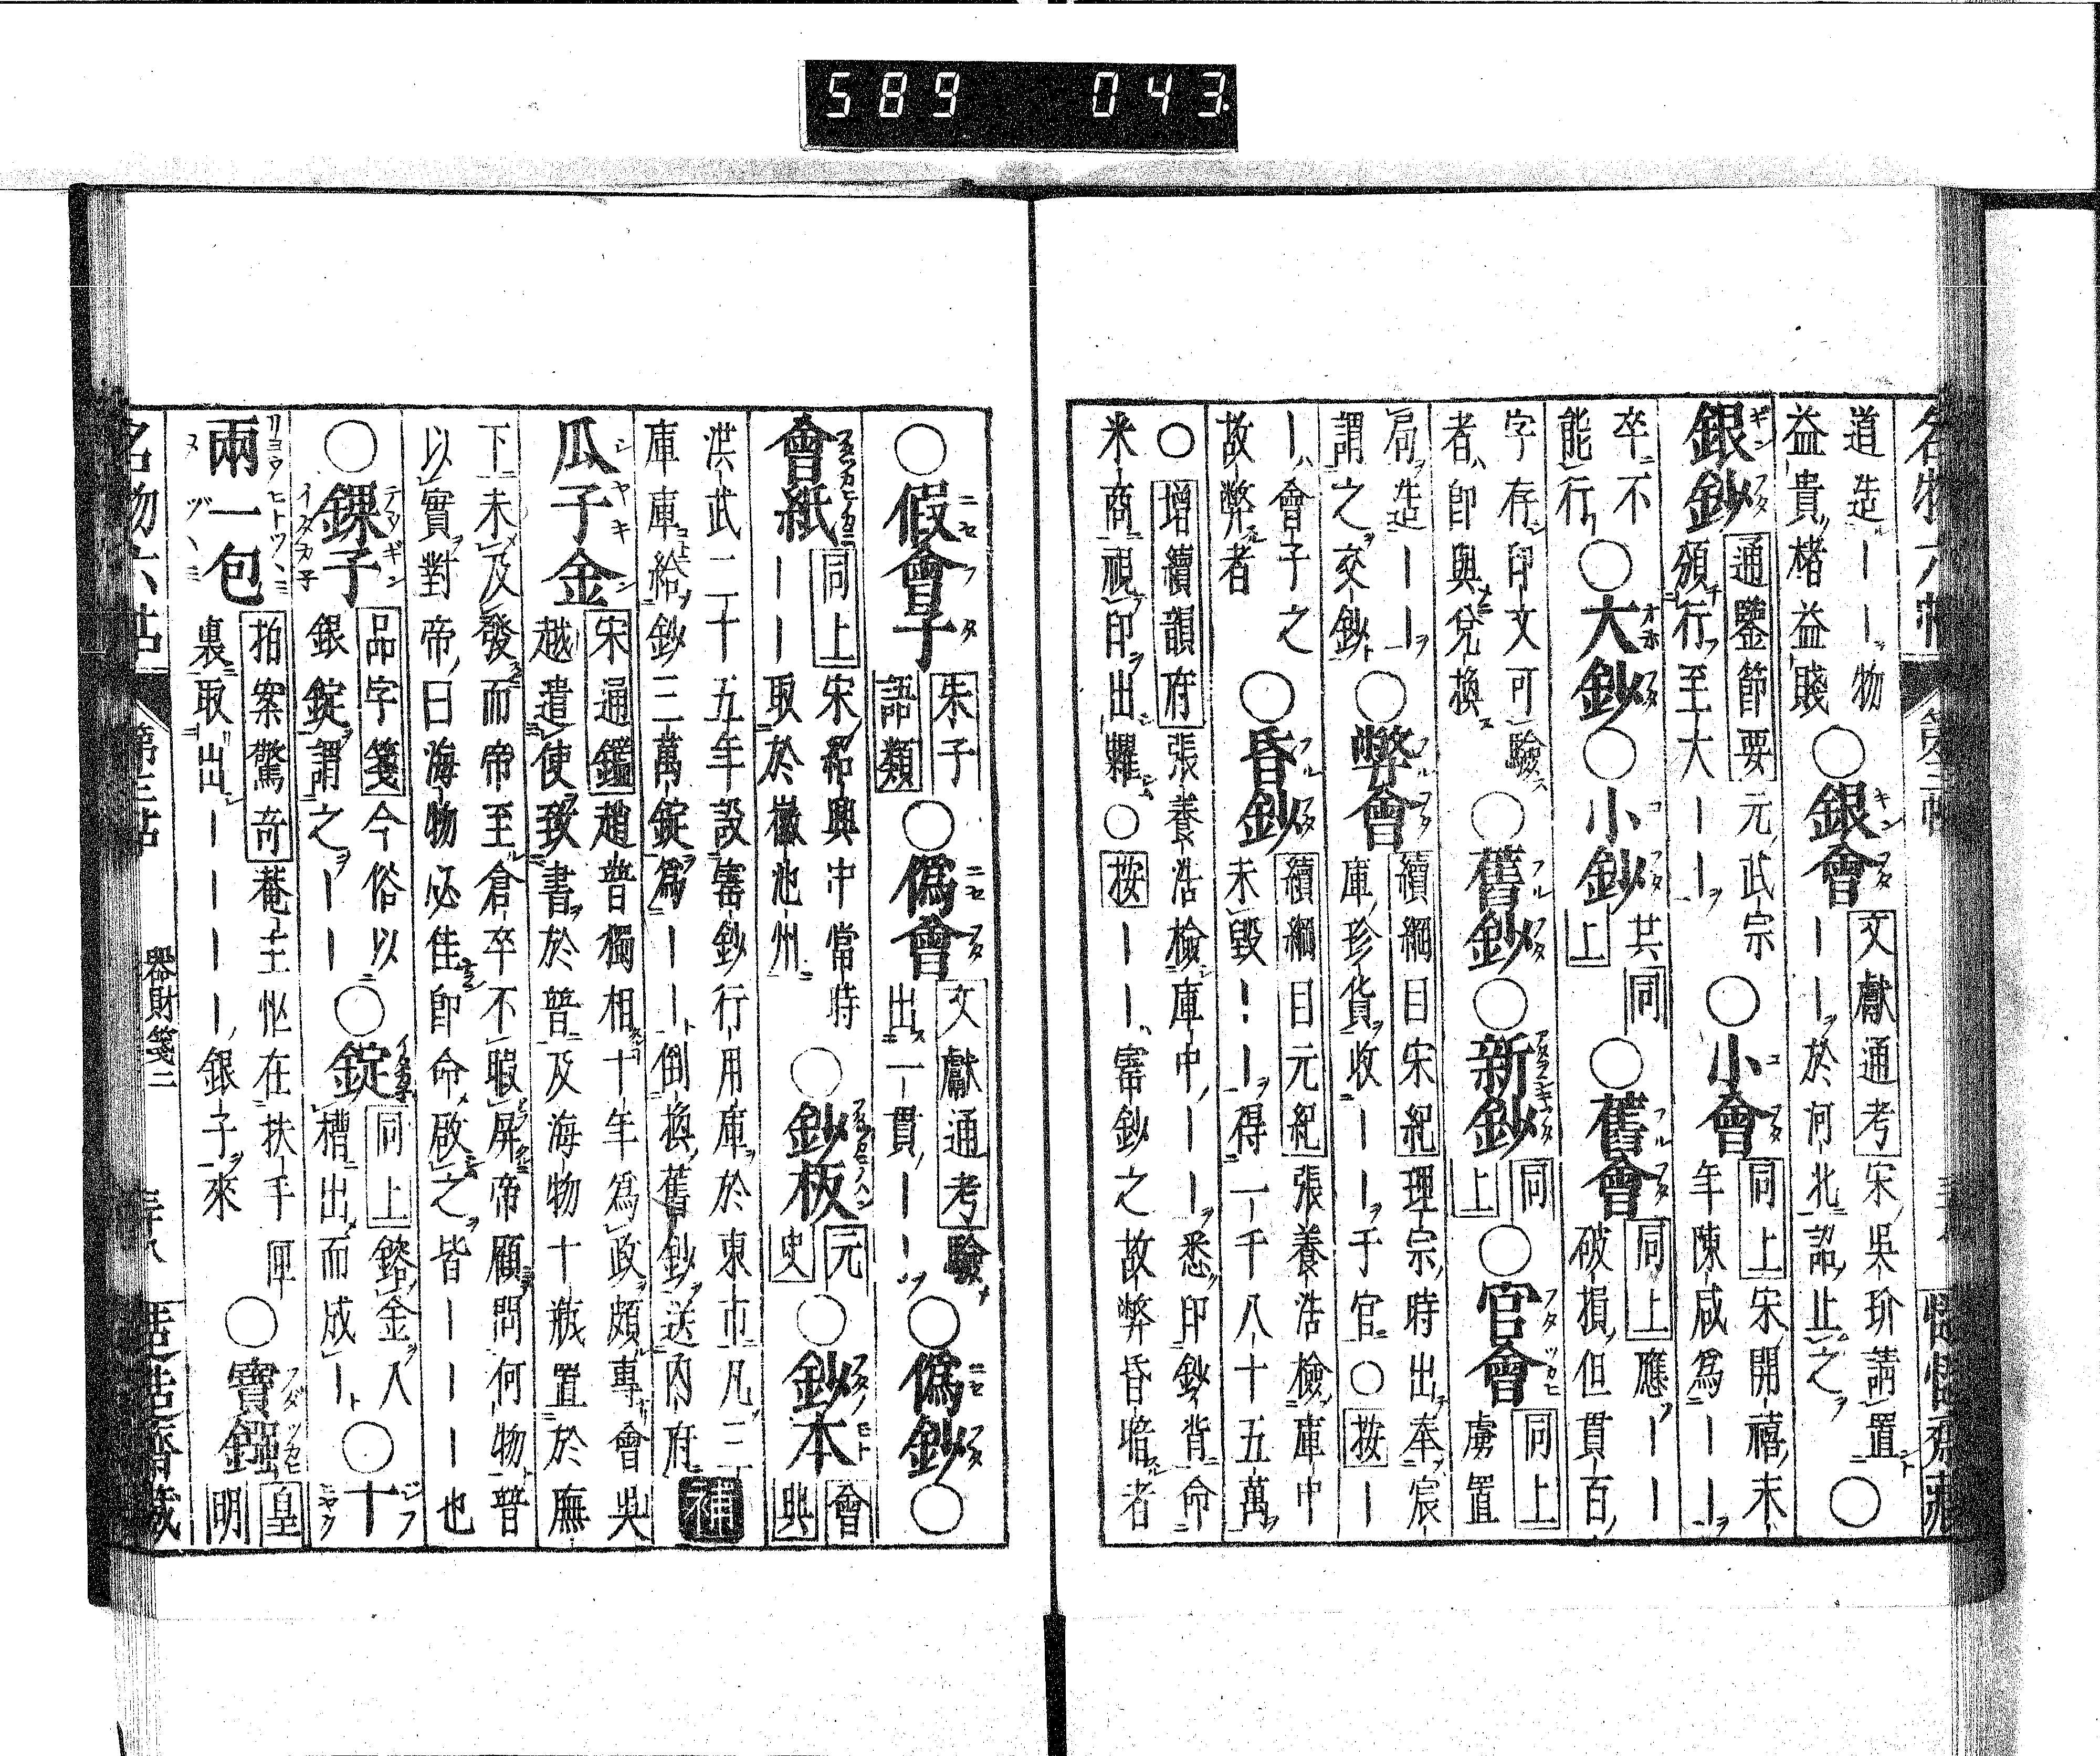 589 043
道造｜｜物
益貴楮益賤○銀會 文獻通考 宋吳玠請置
｜｜於河北詔止之○
銀鈔 通鑒節要 元武宗
頒行至大｜｜○小會 同上 宋開禧末
年陳咸爲｜｜
卒不
能行○大鈔○小鈔 共同上○舊會 同上 應｜｜
破損但貫百
字存印文可驗
者即與兌換○舊鈔○新鈔 同上○官會 同上
虜置
局造｜｜
謂之交鈔○弊會 續綱目宋紀 理宗時出奉宸
庫珍貨收｜｜于官○按｜
｜會子之
故弊者○昏鈔 續綱目元紀 張養浩檢庫中
未毀｜｜得一千八十五萬
○增續韻府 張養浩檢庫中｜｜悉印鈔背命
米商視印出糶○按｜｜寚鈔之故弊昏暗者
○假會子 朱子語類○僞會 文獻通考 驗
出一貫｜｜○僞鈔○
會紙 同上 宋紹興中當時
｜｜取於徽池州○鈔板 元史○鈔本 會典
洪武二十五年設寚鈔行用庫於東市凡三
庫庫給鈔三萬錠爲｜｜倒換舊鈔送內府 補
瓜子金 宋通鑑 趙普獨相十年爲政頗專會吳
越遣使致書於普及海物十瓶置於廡
下未及發而帝至倉卒不暇屏帝顧問何物普
以實對帝曰海物必佳即命啟之皆｜｜｜也
○錁子 品字箋 今俗以
銀錠謂之｜｜○錠 同上 鎔金入
槽出而成｜○十
兩一包 拍案驚奇 菴主忙在扶手匣
裏取出｜｜｜｜銀子來○寶鏹 皇明
名物六帖 第三帖 器財箋二